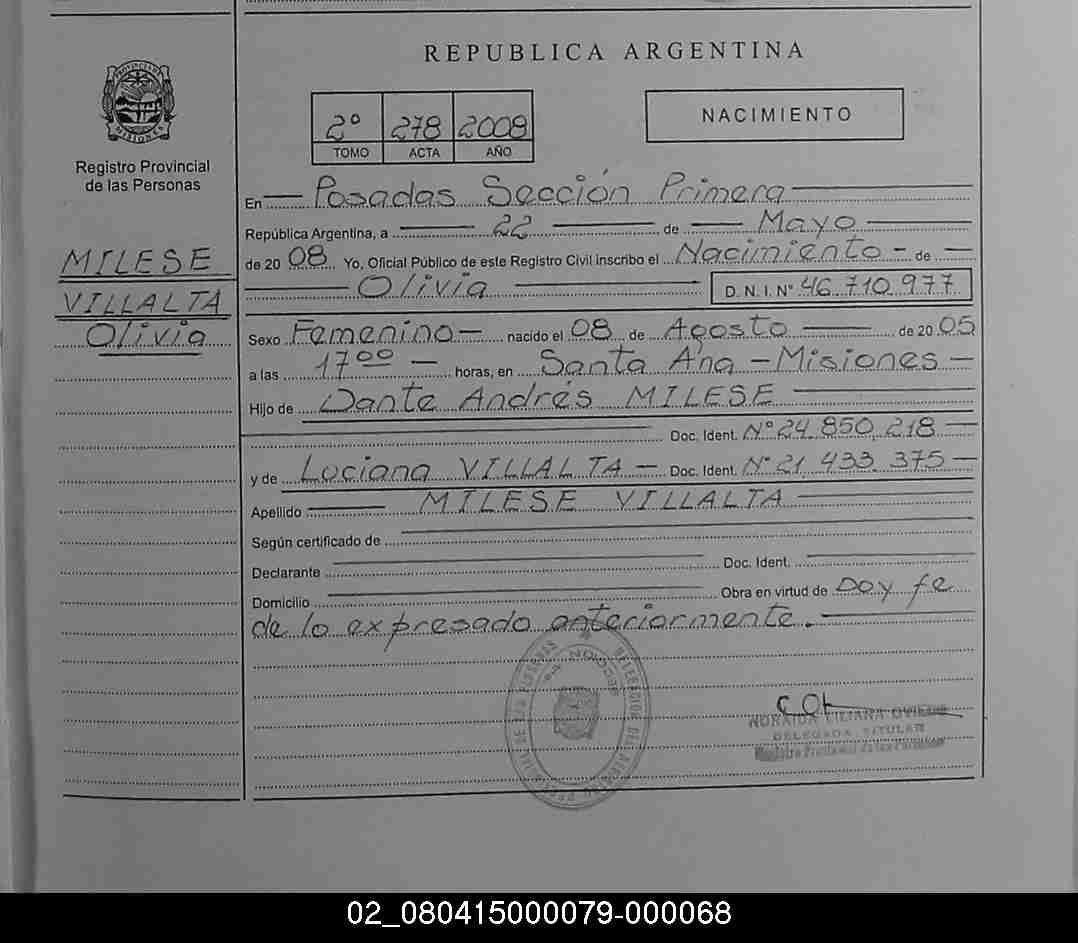 REPUBLICA ARGENTINA
PROVINCIA DE
MISIONES
Registro Provincial
de las Personas
2º 278 2008
TOMO ACTA AÑO
NACIMIENTO
MILESE
VILLALTA
Olivia
En Posadas Sección Primera
República Argentina, a 22 de Mayo
de 20 08 Yo, Oficial Público de este Registro Civil inscribo el Nacimiento de
Olivia D.N.I. Nº 46 710 977
Sexo Femenino nacido el 08 de Agosto de 20 05
a las 17 00 horas, en Santa Ana - Misiones
Hijo de Dante Andrés MILESE
Doc. Ident. Nº 24 850 218
y de Luciana VILLALTA Doc. Ident. Nº 21 433 375
Apellido MILESE VILLALTA
Según certificado de
Declarante Doc. Ident.
Domicilio Obra en virtud de Doy fe
de lo expresado anteriormente.
SECCION 1ra
DELEGADA TITULAR
Registro Provincial de las Personas
02_080415000079-000068